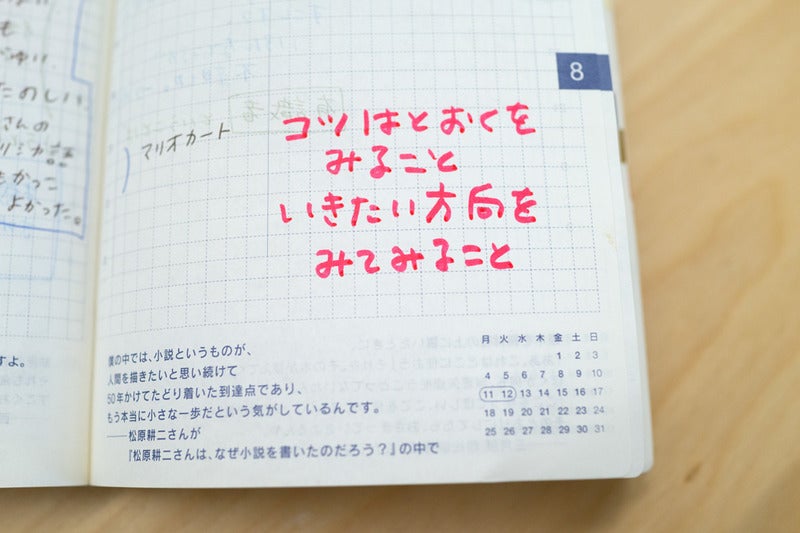 も
たのしい
さんの
よかった。
すよ。
8
マリオカート
コツはとおくを
みること
いきたい方向を
みてみること
僕の中では、小説というものが、
人間を描きたいと思い続けて
50年かけてたどり着いた到達点であり、
もう本当に小さな一歩だという気がしているんです。
――松原耕二さんが
『松原耕二さんは、なぜ小説を書いたのだろう？』の中で
月 火 水 木 金 土 日
1 2 3
4 5 6 7 8 9 10
11 12 13 14 15 16 17
18 19 20 21 22 23 24
25 26 27 28 29 30 31